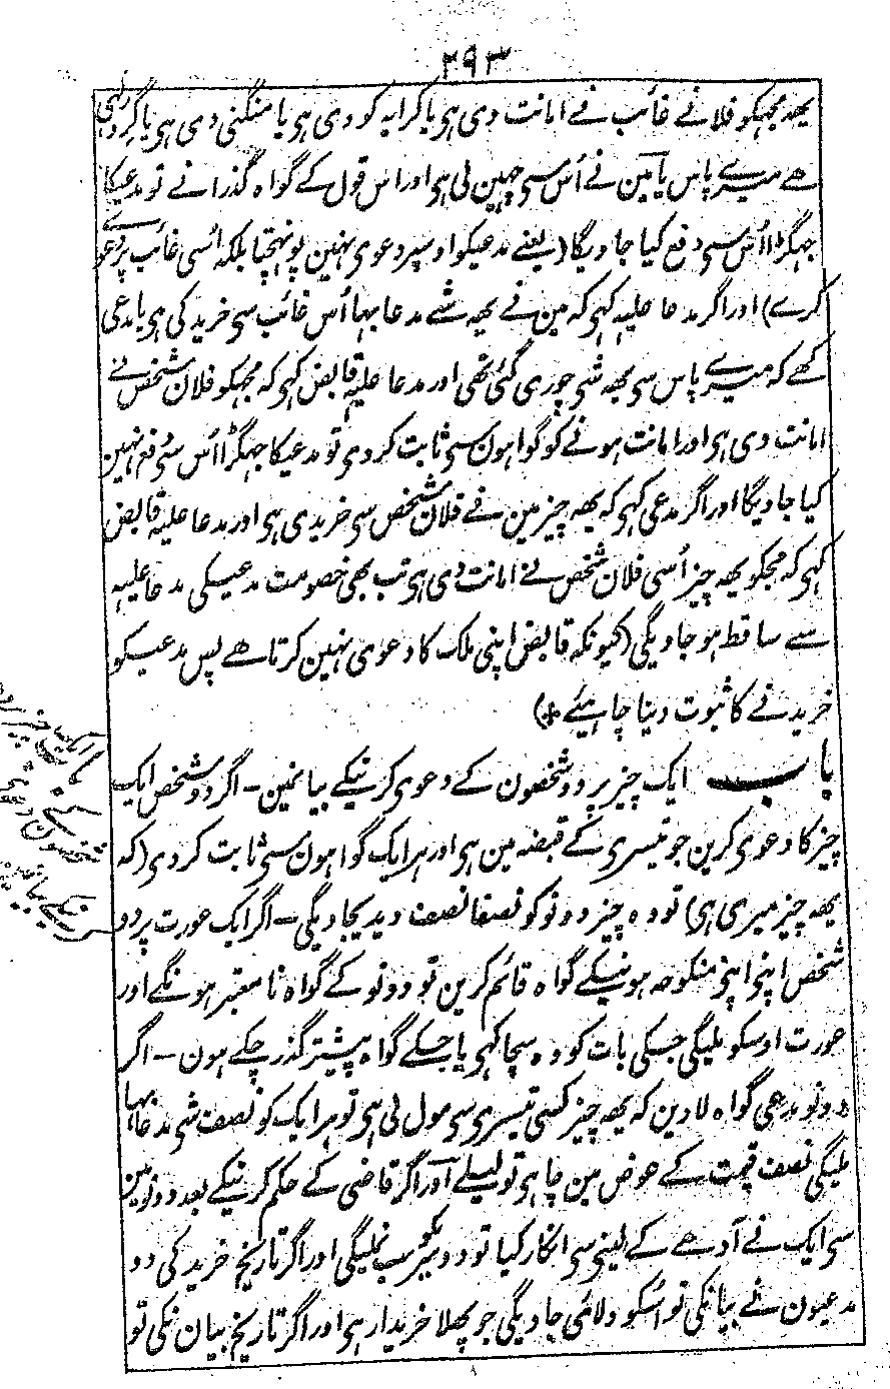 ۲۹۳
یھہ مجہکو فلانے غائب نے امانت دی ہی یا کرایہ کو دی ہی یا منگنی دی ہی یا گرو رکھی
ھے میرے پاس یا مین نے اُس سی چہین لی ہی اور اس قول کے گواہ گذرانے تو مدعیکا
جہگڑا اُس سی دفع کیا جاویگا (یعنے مدعیکو اوسپر دعوی نہین پونہچتا بلکہ اُسی غائب پر دعوے
کرے) اور اگر مدعا علیہ کہی کہ مین نے یھہ شے مدعا بہا اُس غائب سی خرید کی ہی یا مدعی
کہے کہ میرے پاس سی یھہ شی چوری گئی تھی اور مدعا علیہ قابض کہی کہ مجہکو فلان شخص نے
امانت دی ہی اور امانت ہونے کو گواہون سی ثابت کردی تو مدعیکا جہگڑا اُس سی دفع نہین
کیا جاویگا اور اگر مدعی کہی کہ یھہ چیز مین نے فلان شخص سی خریدی ہی اور مدعا علیہ قابض
کہی کہ مجکو یھہ چیز اُسی فلان شخص نے امانت دی ہی تب بھی خصومت مدعیکی مدعا علیہ
سے ساقط ہو جاویگی (کیونکہ قابض اپنی ملک کا دعوی نہین کرتا ھے پس مدعیکو
خریدنے کا ثبوت دینا چاہیئے +)
باب ایک چیز پر دو شخصون کے دعوی کرنیکے بیانمین - اگر دو شخص ایک
چیز کا دعوی کرین جو تیسری کے قبضہ مین ہی اور ہر ایک گواہون سی ثابت کردی (کہ
یھہ چیز میری ہی) تو وہ چیز دونو کو نصفا نصف دیدیجاویگی - اگر ایک عورت پر دو
شخص اپنی اپنی منکوحہ ہونیکے گواہ قائم کرین تو دونو کے گواہ نامعتبر ہونگے اور
عورت اوسکو ملیگی جسکی بات کو وہ سچا کہی یا جسکے گواہ پیشتر گذر چکے ہون - اگر
دونو مدعی گواہ لادین کہ یھہ چیز کسی تیسری سی مول لی ہی تو ہر ایک کو نصف شی مدعا بہا
ملیگی نصف قیمت کے عوض مین چاہی تو لیلے اور اگر قاضی کے حکم کرنیکے بعد دونو مین
سی ایک نے آدھے کے لینی سی انکار کیا تو دوسریکو سب نملیگی اور اگر تاریخ خرید کی دو
مدعیون نے بیانکی تو اُسکو دلائی جاویگی جو پہلا خریدار ہی اور اگر تاریخ بیان نکی تو
باب ایک چیز پر دو
شخصون کے دعوی
کرنیکے بیانمین